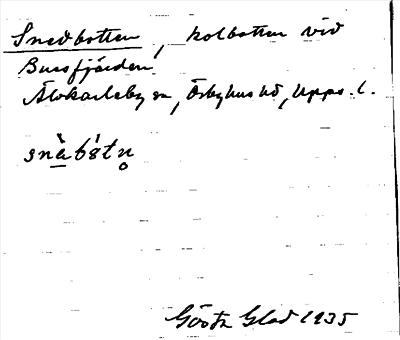 Snedbotten, kolbotten vid
Bussfjärden
Älvkarleby sn, Örbyhus hd, Upps. l.
snὰbá̵tn̥
Gösta Glad 1935